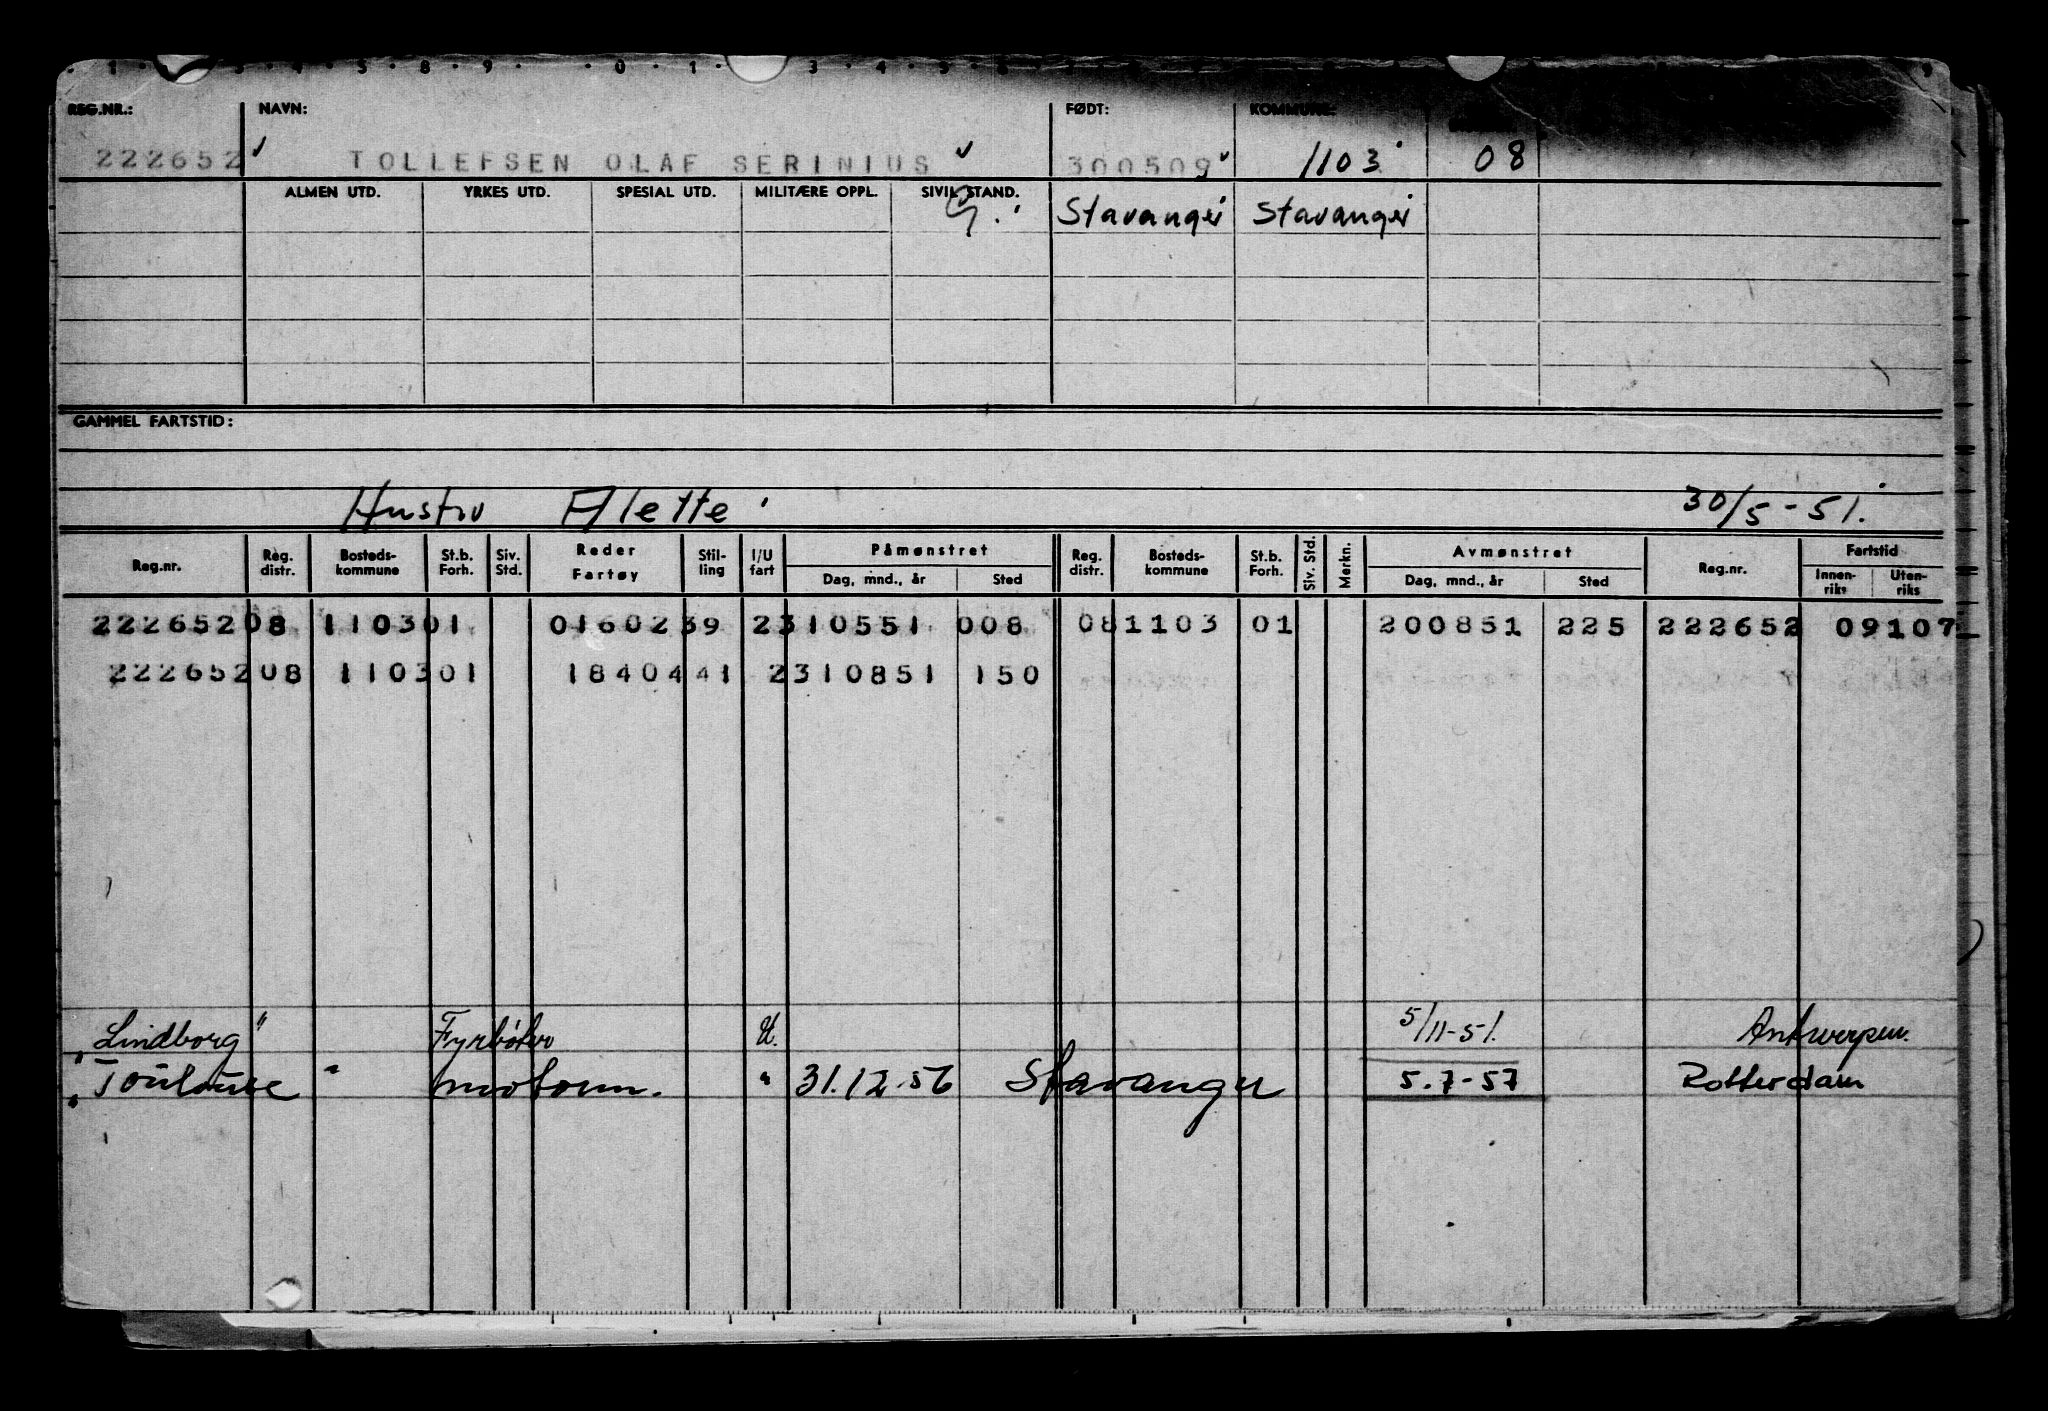 REG.NR.: NAVN: FØDT: KOMMUNE:
222652 TOLLEFSEN OLAF SERINIUS 300509 1103 08
ALMEN UTD. YRKES UTD. SPESIAL UTD. MILITÆRE OPPL. SIVIL STAND.
G. Stavanger Stavanger
GAMMEL FARTSTID:
Hustru Alette 30/5-51.
Reg.nr. Reg. distr. Bosteds-kommune St.b. Forh. Siv. Std. Reder Fartøy Stil-ling I/U fart Påmønstret Dag, mnd., år Sted Reg. distr. Bosteds-kommune St.b. Forh. Siv. Std. Merkn. Avmønstret Dag, mnd., år Sted Reg.nr. Fartstid Innen-riks Uten-riks
222652 08 1103 01 01602 39 2 310551 008 08 1103 01 200851 225 222652 09107
222652 08 1103 01 18404 41 2 310851 150
"Lindborg" Fyrbøter U. 5/11-51. Antwerpen.
"Toulouse" motorm. " 31.12.56 Stavanger 5.7-57 Rotterdam